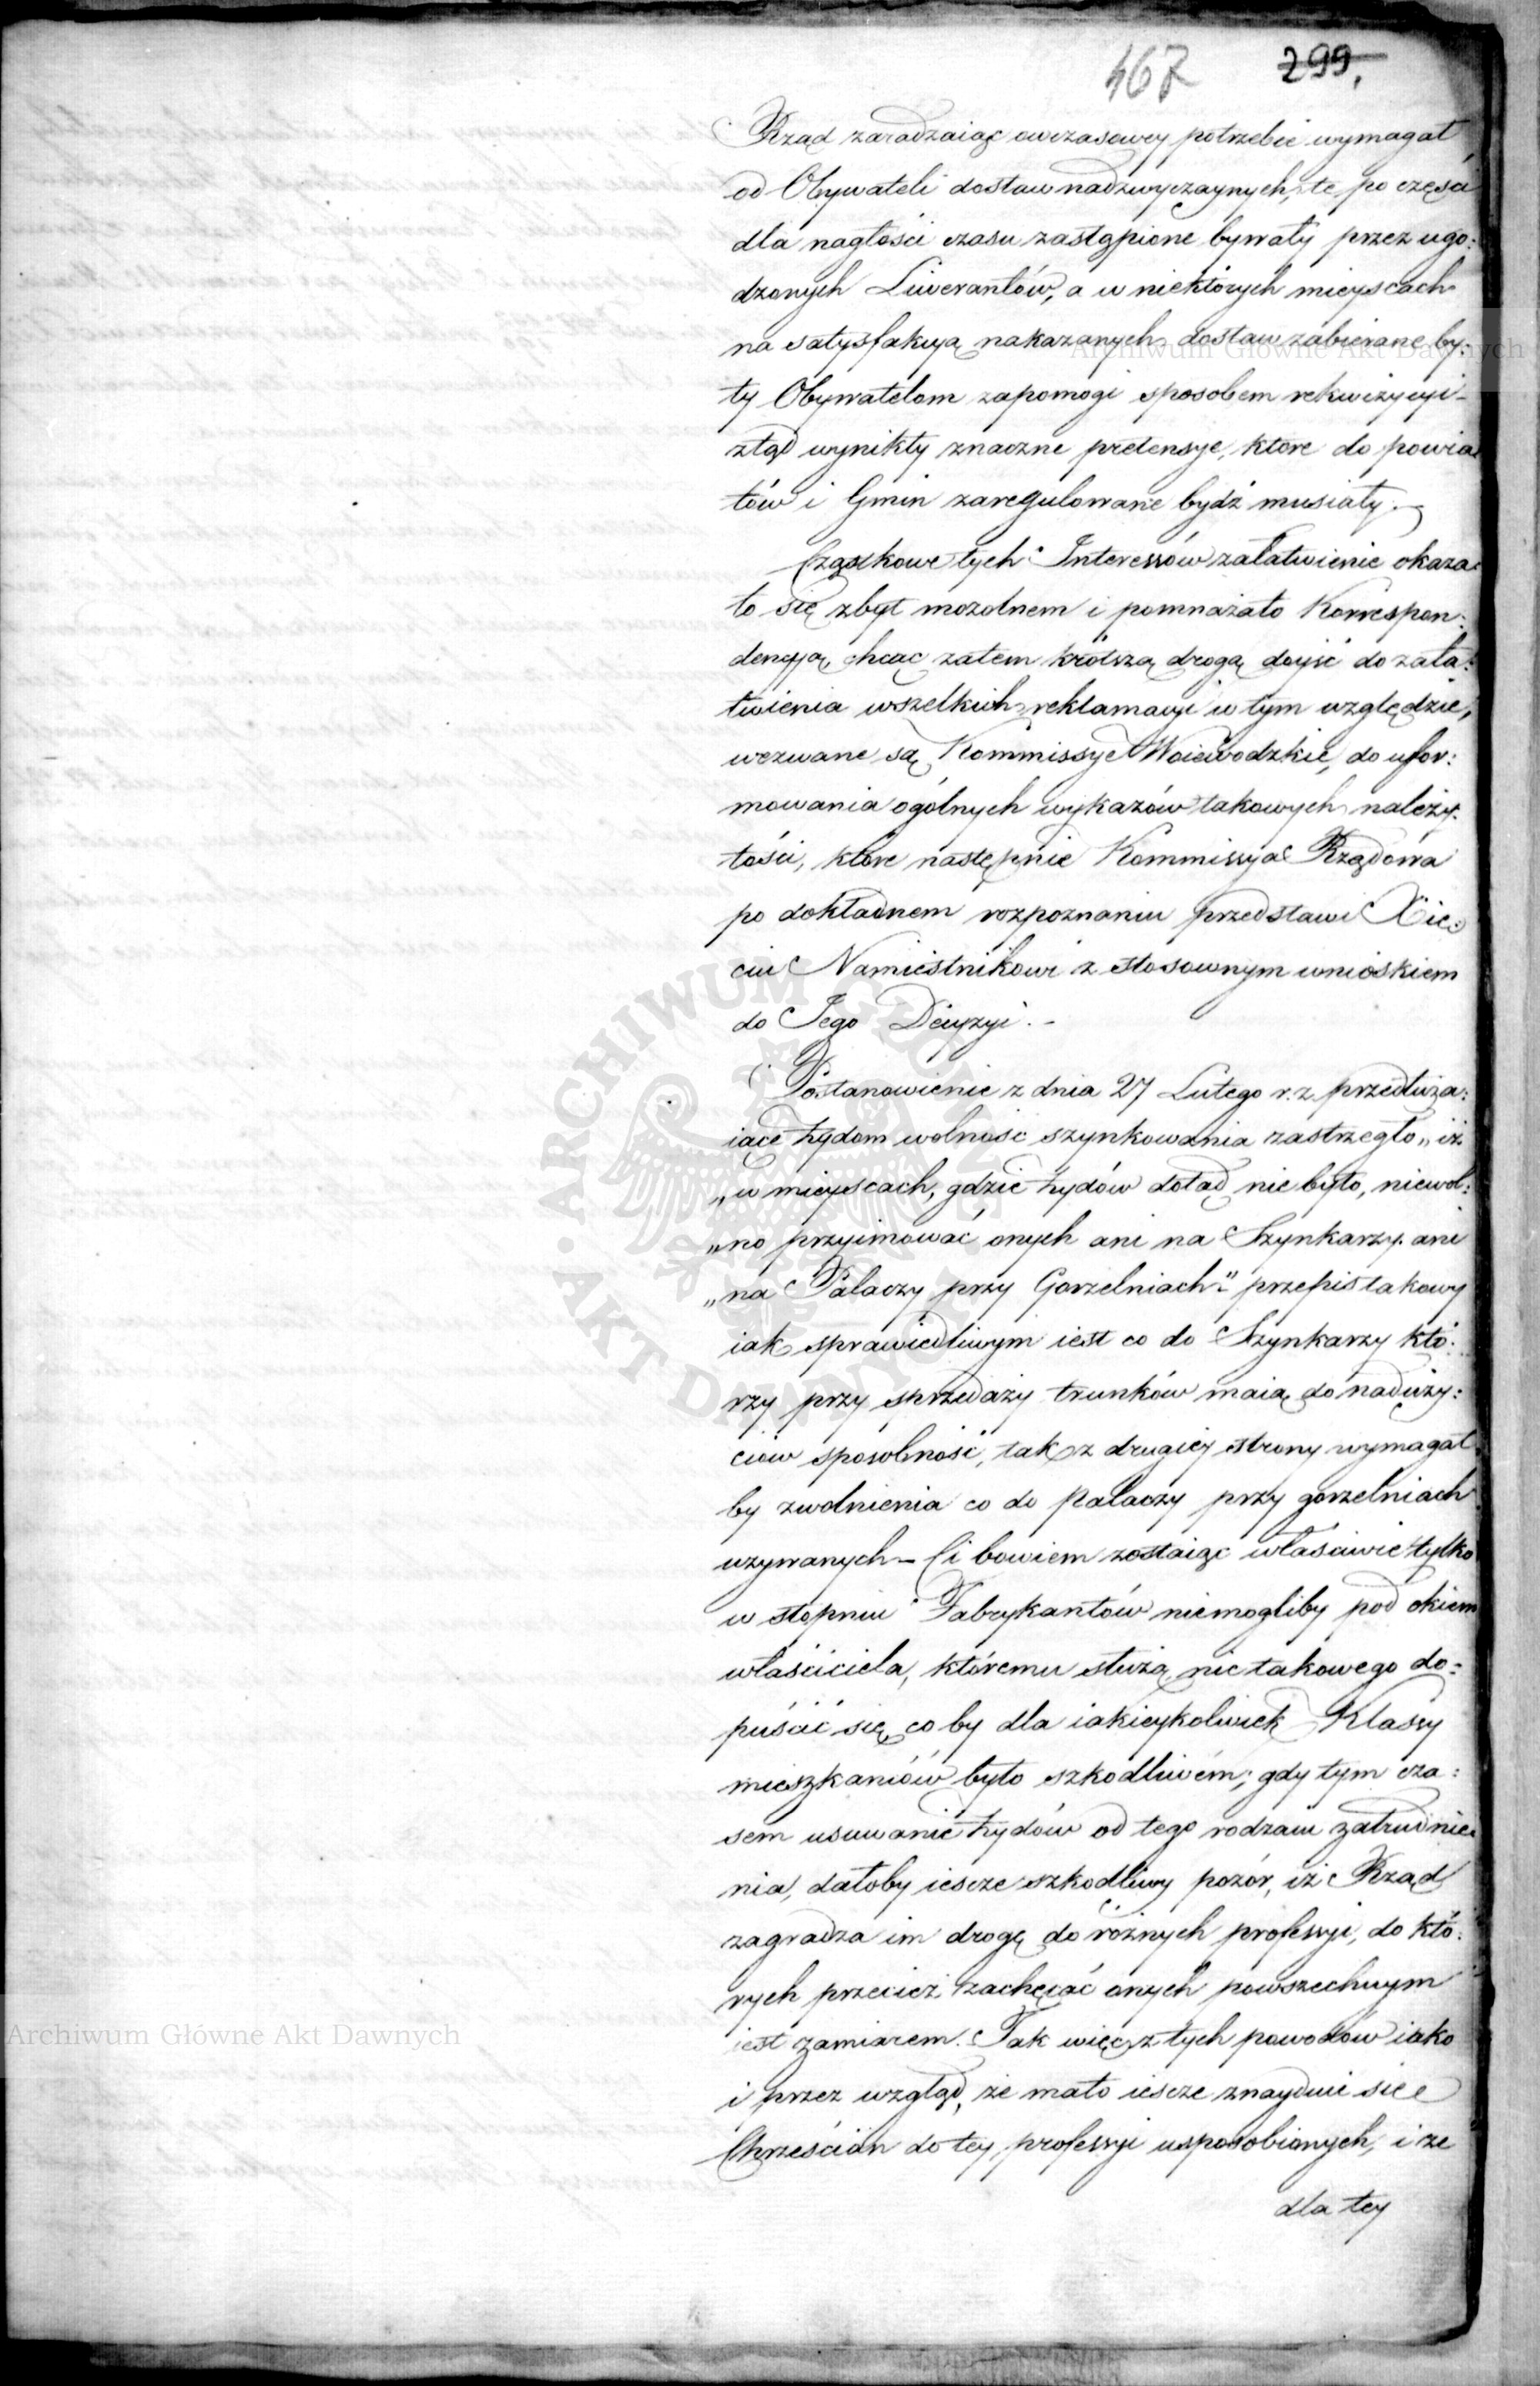 467 299.
Rząd zaradzaiąc owczasowey potrzebie wymagał
od Obywateli dostaw nadzwyczaynych, te po części
dla nagłości czasu zastąpione bywały przez ugo:
dzonych Liwerantów, a w niektórych mieyscach
na satysfakcyą nakazanych dostaw zabierane by:
ły Obywatelom zapomogi sposobem rekwizycyi -
ztąd wynikły znaczne pretensye, które do powia:
tów i Gmin zaregulowane bydź musiały. -
Cząstkowe tych Interessów załatwienie okaza:
ło się zbyt mozolnem i pomnażało Korrespon:
dencyą, chcąc zatem krótszą drogą doyść do zała:
twienia wszelkich reklamacyi w tym względzie,
wezwane są Kommissye Woiewodzkie, do ufor:
mowania ogólnych wykazów takowych należy:
tości, które następnie Kommissya Rządowa
po dokładnem rozpoznaniu przedstawi Xię:
ciu Namiestnikowi z stosownym wnioskiem
do Jego Decyzyi. -
Postanowienie z dnia 27 Lutego r. z. przedłuża:
iące żydom wolność szynkowania zastrzegło „iż
„w mieyscach, gdzie żydów dotąd nie było, niewol:
„no przyimować onych ani na Szynkarzy ani
„na Palaczy przy Gorzelniach" przepis takowy
iak sprawiedliwym iest co do Szynkarzy któ:
rzy przy sprzedaży trunków maią do naduży:
ciów sposobność, tak z drugiey strony wymagał
by zwolnienia co do Palaczy przy gorzelniach
używanych - Ci bowiem zostaiąc właściwie tylko
w stopniu Fabrykantów niemogliby pod okiem
właściciela, któremu służą nic takowego do:
puścić się, coby dla iakieykolwiek Klassy
mieszkańców było szkodliwém; gdy tym cza:
sem usuwanie żydów od tego rodzaiu zatrudnie:
nia, dałoby ieszcze szkodliwy pozór, iż Rząd
zagradza im drogę do różnych professyi, do któ:
rych przecież zachęcać onych powszechnym
iest zamiarem. Tak więc z tych powodów iako
i przez wzgląd, że mało ieszcze znayduie się
Chrześcian do tey professyi usposobionych, i że
dla tey
Archiwum Główne Akt Dawnych
Archiwum Główne Akt Dawnych
ARCHIWUM GŁÓWNE · AKT DAWNYCH ·